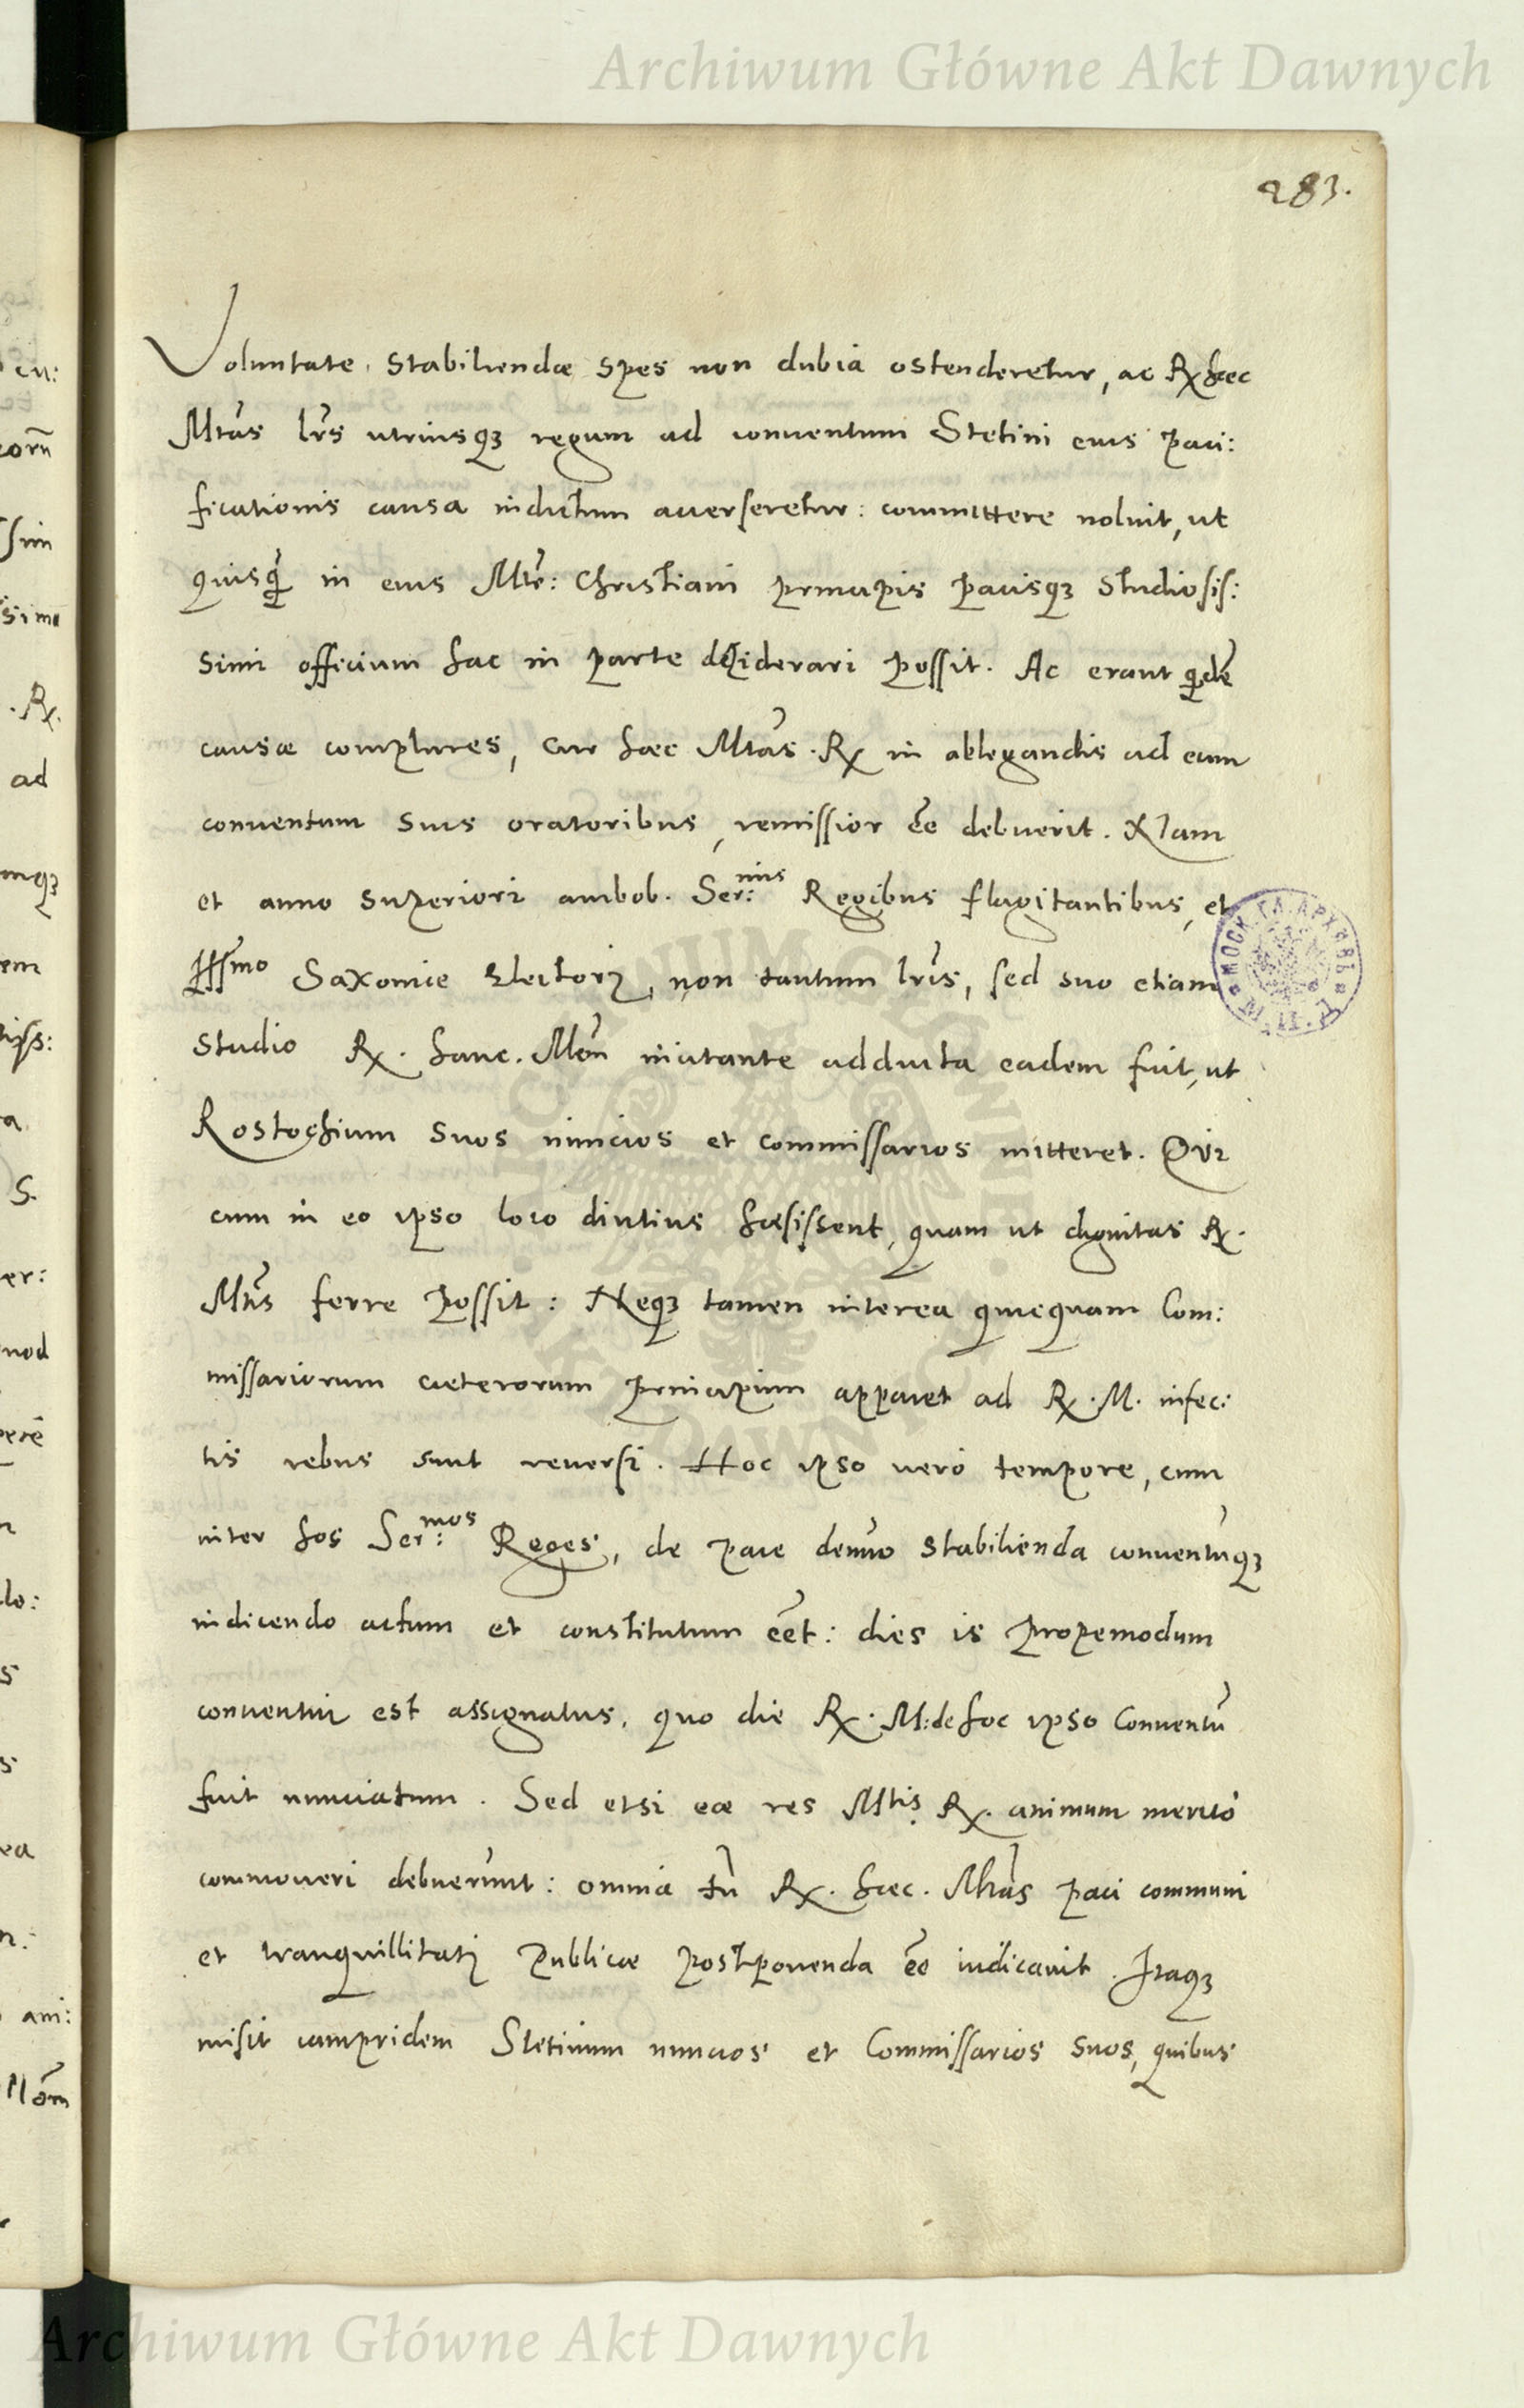 Archiwum Główne Akt Dawnych
283.
Voluntate, stabiliendæ spes non dubia ostenderetur, ac Rx hæc
Mtas lris utriusqꝫ regum ad conuentum Stetini eius paci:
ficationis causa indictum auerseretur: committere noluit, ut
quisqꝫ in eius Mte: Christiani principis pacisqꝫ studiosis:
simi officium hac in parte desiderari possit. Ac erant quidē
causæ complures, cur hæc Mtas. Rx in ablegandis ad eum
conuentum suis oratoribus, remissior ēe debuerit. Nam
et anno superiori ambob. Ser:mis Regibus flagitantibus, et
Illmo Saxoniæ Electori, non tantum lris, sed suo etiam
studio Rx. hanc. Mtem incitante adducta eadem fuit, ut
Rostochium suos nuncios et commissarios mitteret. Qui
cum in eo ipso loco diutius hæsissent, quam ut dignitas Rx.
Mtis ferre possit: Neqꝫ tamen interea quiequam Com:
missariorum cæterorum principum apparet ad Rx. M. infec:
tis rebus sunt reuersi. Hoc ipso uero tempore, cum
inter hos Ser:mos Reges, de pace denuo stabilienda conuentuqꝫ
indicendo actum et constitutum eēt: dies is propemodum
conuentui est assignatus, quo die Rx. M: de hoc ipso Conuentu
fuit nunciatum. Sed etsi eæ res Mtis Rx. animum merito
commoueri debuerunt: omnia tn Rx. hæc. Mtas paci communi
et tranquillitati publicæ postponenda ēe iudicauit. Itaqꝫ
misit iampridem Stetinum nuncios et Commissarios suos, quibus
Archiwum Główne Akt Dawnych